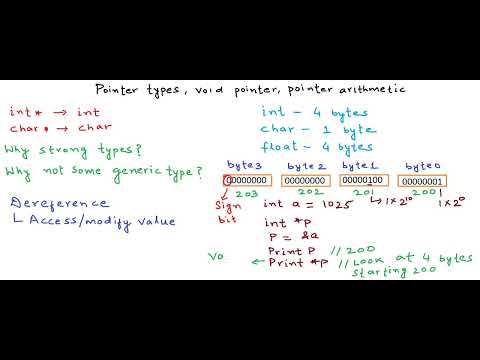 Pointer types, void pointer, pointer arithmetic
int* → int
char* → char
Why strong types?
Why not some generic type?
Dereference
↳ Access/modify value
int - 4 bytes
char - 1 byte
float - 4 bytes
byte3 byte2 byte1 byte0
00000000 00000000 00000100 00000001
203 202 201 200
Sign bit
int a = 1025 ↳ 1×2¹⁰ 1×2⁰
int *p
P = &a
Print P // 200
Vo ← Print *p // Look at 4 bytes
starting 200